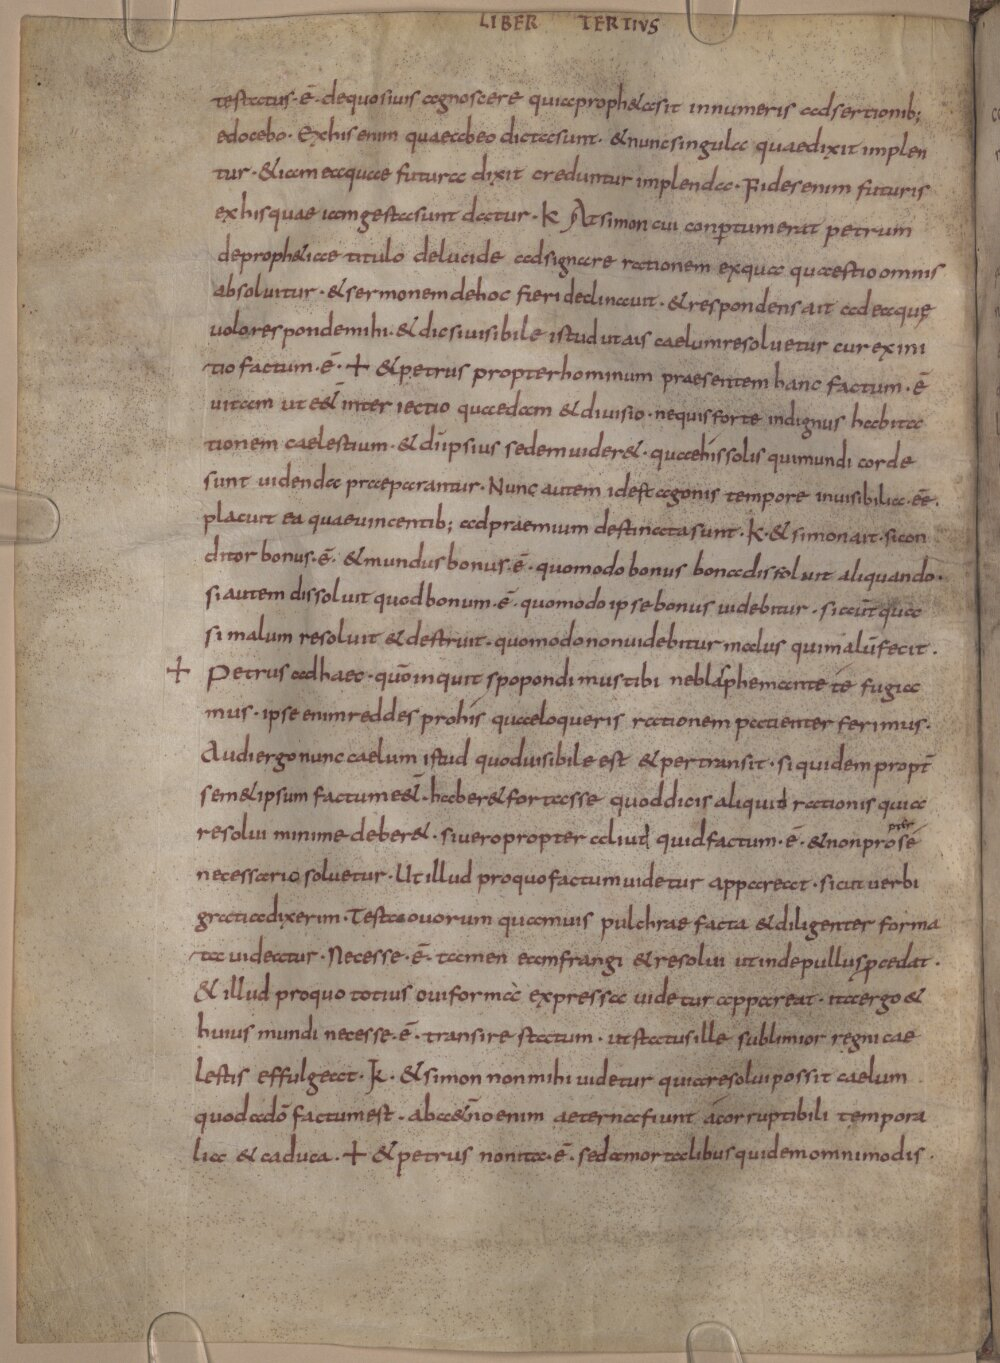 LIBER TERTIVS
testatus · ē · dequosiuis agnoscere quiaprophetasit innumeris adsertionib;
edocebo · Exhis enim quaeabeo dictasunt · &nuncsingula quaedixit implen
tur · &iam eaquae futura dixit creduntur implenda · Fides enim futuris
exhisquae iamgestasunt datur · K At simon cui conptum erat petrum
deprophetiae titulo delucide adsignare rationem exqua quaestio omnis
absoluitur · &sermonem dehoc fieri declinauit · &respondens ait adeaque
uolo respondemihi · &dicsiuisibile istud utais caelum resoluetur cur exini
tio factum · ē · + &petrus propter hominum praesentem hanc factum · ē
uitam ut e&̄ inter iectio quaedam &diuisio · nequis forte indignus habita
tionem caelestium · &dīipsius sedem uider& · quaehis solis quimundi corde
sunt uidenda praeparantur · Nunc autem idest agonis tempore inuisibilia · ēē ·
placuit ea quaeuincentib; adpraemium destinata sunt · K · &simon ait · sicon
ditor bonus · ē · &mundus bonus · ē · quomodo bonus bona dissoluit aliquando ·
si autem dissoluit quod bonum · ē · quomodo ipse bonus uidebitur · si aūt qua
si malum resoluit &destruit · quomodo non uidebitur malus quimalū fecit ·
+ Petrus adhaec · quō inquit spopondimus tibi neblasphemante té fugia
mus · ipse enim reddes prohis quaeloqueris rationem patienter ferimus ·
Audiergo nunc caelum istud quoduisibile est &pertransit · si quidem propt̄
sem&ipsum factum e&̄ · haber& fortasse quod dicis aliquid rationis quia
resolui minime deber& · siuero propter aliud quid factum · ē · &nonpro sé propter
necessario soluetur · Ut illud proquo factum uidetur appareat · sicut uerbi
gratia dixerim · Testa ouorum quamuis pulchrae facta &diligenter forma
ta uideatur · Necesse · ē · tamen eam frangi &resolui ut inde pullus pcedat ·
& illud proquo totius oui forma expressa uidetur appareat · ita ergo &
huius mundi necesse · ē · transire statum · ut status ille sublimior regni cae
lestis effulgeat · K · &simon non mihi uidetur quia resolui possit caelum
quod adō factum est · aba&̄no enim aeterna fiunt acorruptibili tempora
lia & caduca · + &petrus nonita · ē · sed amortalibus quidem omnimodis ·